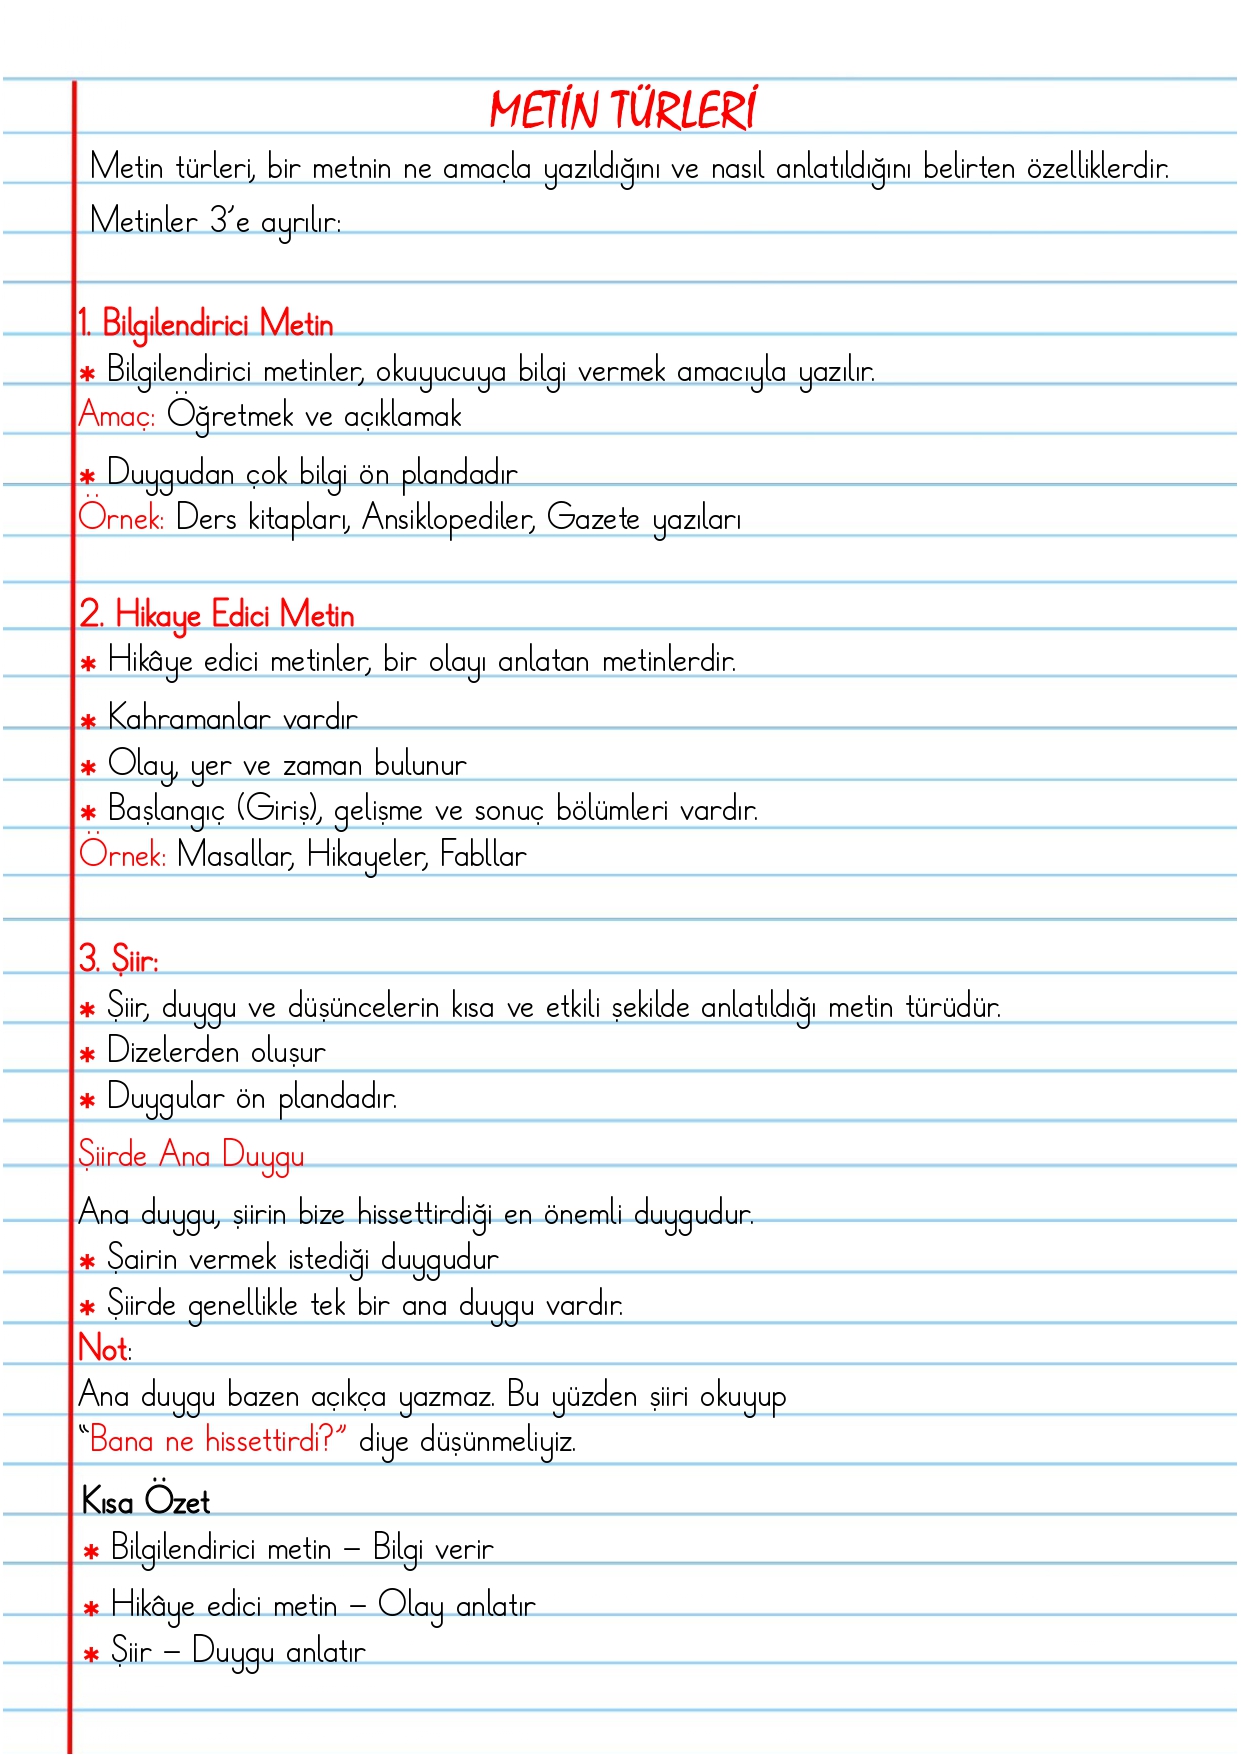 METİN TÜRLERİ
Metin türleri, bir metnin ne amaçla yazıldığını ve nasıl anlatıldığını belirten özelliklerdir.
Metinler 3’e ayrılır:
1. Bilgilendirici Metin
* Bilgilendirici metinler, okuyucuya bilgi vermek amacıyla yazılır.
Amaç: Öğretmek ve açıklamak
* Duygudan çok bilgi ön plandadır
Örnek: Ders kitapları, Ansiklopediler, Gazete yazıları
2. Hikaye Edici Metin
* Hikâye edici metinler, bir olayı anlatan metinlerdir.
* Kahramanlar vardır
* Olay, yer ve zaman bulunur
* Başlangıç (Giriş), gelişme ve sonuç bölümleri vardır.
Örnek: Masallar, Hikayeler, Fabllar
3. Şiir:
* Şiir, duygu ve düşüncelerin kısa ve etkili şekilde anlatıldığı metin türüdür.
* Dizelerden oluşur
* Duygular ön plandadır.
Şiirde Ana Duygu
Ana duygu, şiirin bize hissettirdiği en önemli duygudur.
* Şairin vermek istediği duygudur
* Şiirde genellikle tek bir ana duygu vardır.
Not:
Ana duygu bazen açıkça yazmaz. Bu yüzden şiiri okuyup
“Bana ne hissettirdi?” diye düşünmeliyiz.
Kısa Özet
* Bilgilendirici metin – Bilgi verir
* Hikâye edici metin – Olay anlatır
* Şiir – Duygu anlatır